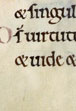 & singul
Of uirtut
& uide &